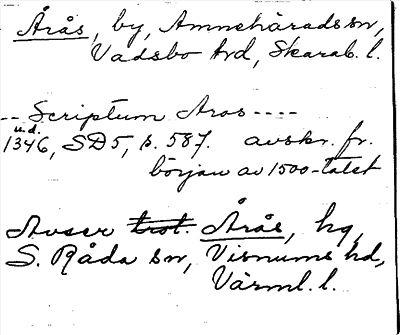 Årås, by, Amnehärads sn,
Vadsbo hd, Skarab. l.
-- Scriptum Aros ----
u.d.
1346, SD 5, s. 587. avskr. fr.
början av 1500-talet
Avser trol. Årås, hg,
S. Råda sn, Visnums hd,
Värml. l.